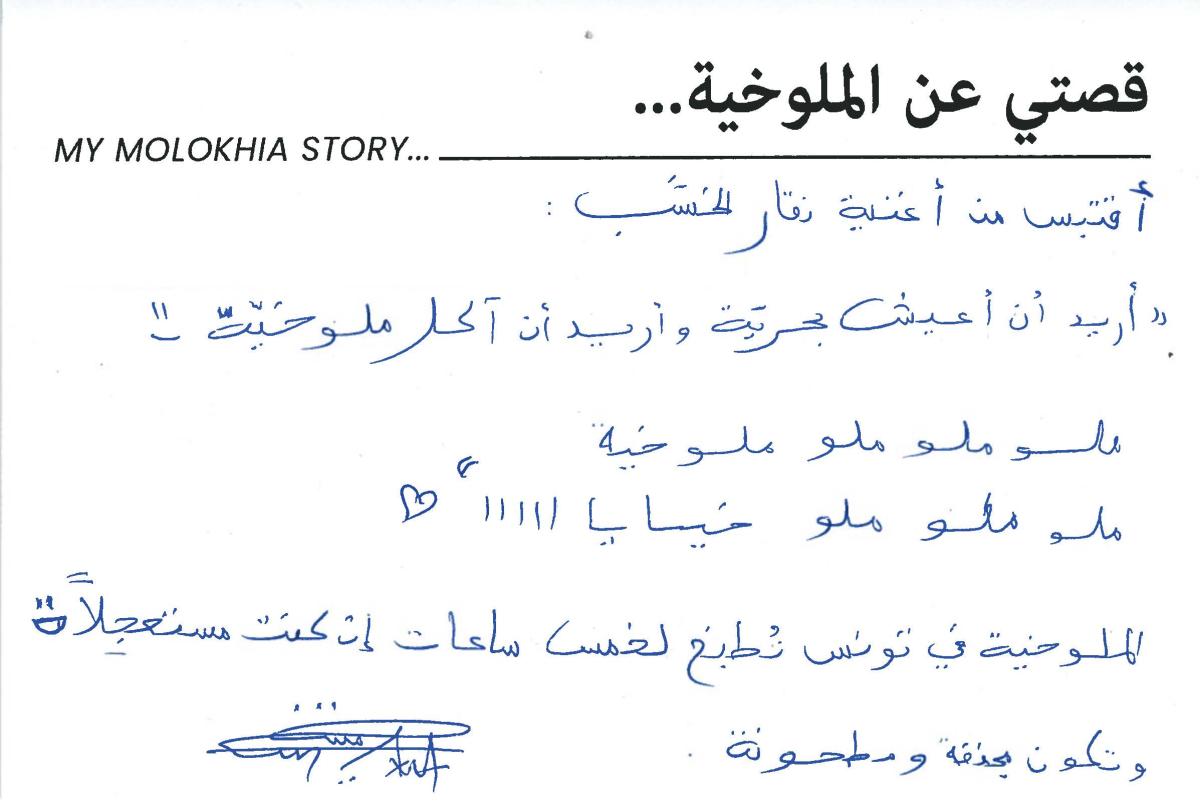 قصتي عن الملوخية...
MY MOLOKHIA STORY...
أقتبس من أغنية نقار الخشب :
"أريد أن أعيش بحريّة وأريد أن آكل ملوخيّة"
ملو ملو ملو ملوخية
ملو ملو ملو خيايا ااااااء
الملوخية في تونس تُطبخ لخمس ساعات إن كنت مستعجِلاً
وتكون مجففة ومطحونة .